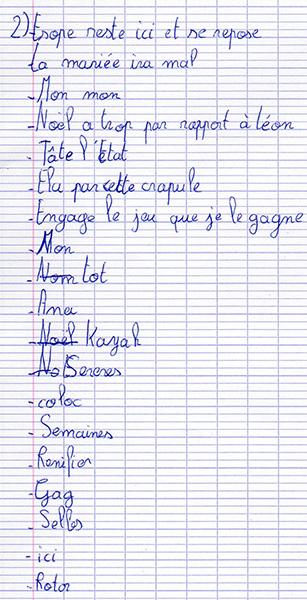 2) Esope reste ici et se repose
La mariée ira mal
- Mon mon
- Noël a trop par rapport à Léon
- Tâte l'État
- Elu par cette crapule
- Engage le jeu que je le gagne
- Mon
- Nom tot
- Ana
- Noël Kayak
- No Serres
- coloc
- Semaines
- Renifler
- Gag
- Selles
- ici
- Rotor